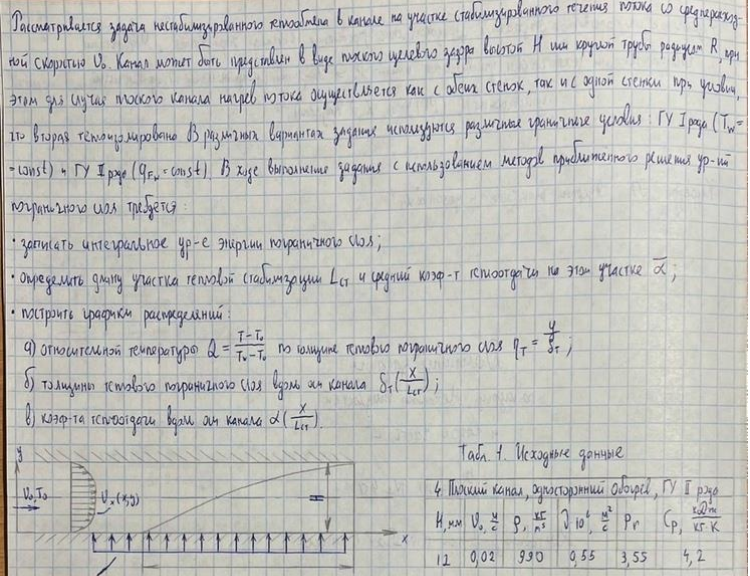 Рассматривается задача нестабилизированного теплообмена в канале на участке стабилизированного течения потока со среднерасход-
ной скоростью U₀. Канал может быть представлен в виде плоского щелевого зазора высотой H или круглой трубы радиусом R, при
этом для случая плоского канала нагрев потока осуществляется как с обеих стенок, так и с одной стенки при условии,
что вторая теплоизолирована. В различных вариантах задания используются различные граничные условия: ГУ I рода (T_w =
= const) и ГУ II рода (q_Fw = const). В ходе выполнение задания с использованием методов приближенного решения ур-ий
пограничного слоя требуется:
• записать интегральное ур-е энергии пограничного слоя;
• определить длину участка тепловой стабилизации L_ст и средний коэф-т теплоотдачи на этом участке α̅;
• построить графики распределений:
а) относительной температуры Q = (T - T₀)/(T_w - T₀) по толщине теплового пограничного слоя η_T = y/δ_T;
б) толщины теплового пограничного слоя вдоль оси канала δ_T(x/L_ст);
в) коэф-та теплоотдачи вдоль оси канала α(x/L_ст).
Табл. 1. Исходные данные
4. Плоский канал, односторонний обогрев, ГУ II рода
H, мм U₀, м/с ρ, кг/м³ ν·10⁶, м²/с Pr Cp, кДж/кг·К
12 0,02 990 0,55 3,55 4,2
y
U₀, T₀
Uₓ(x,y)
H
x